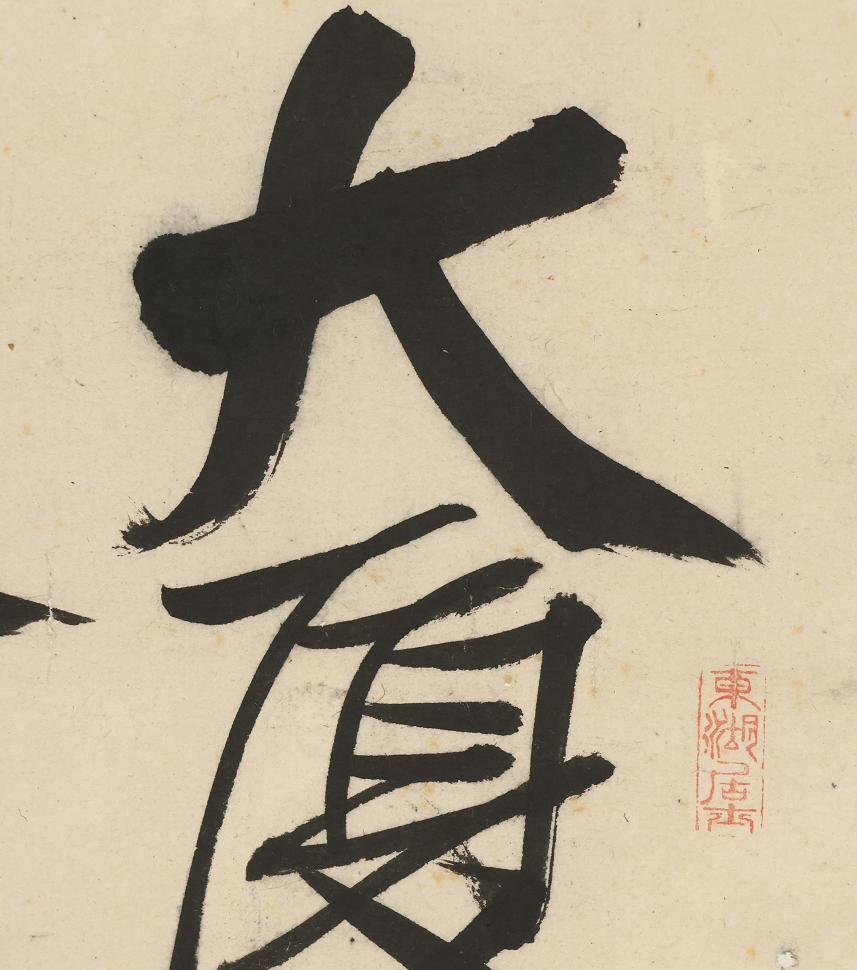 大厦
東湖居士